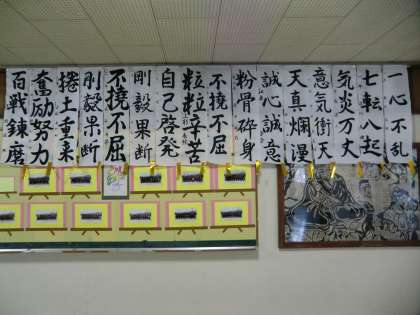 一心不乱
七転八起
気炎万丈
意気衝天
天真爛漫
誠心誠意
粉骨砕身
不撓不屈
粒粒辛苦
自己啓発
剛毅果断
不撓不屈
剛毅果断
捲土重来
奮励努力
百戦錬磨